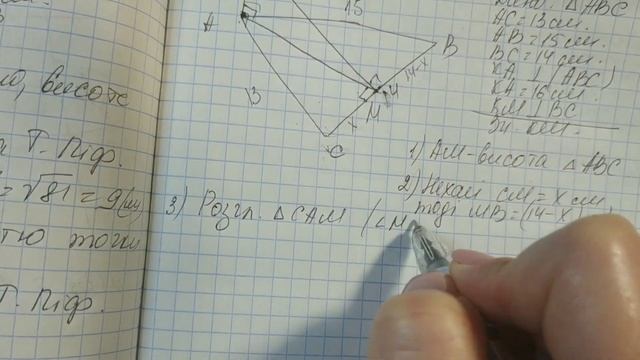 но, висота
Т. Піф.
= √81 = 9(см)
тю точки
Т. Піф.
A
15
B
13
14-x
14
M
x
C
ΔABC
AC = 13 см.
AB = 15 см.
BC = 14 см.
KA ⊥ (ABC)
KA = 16 см.
KM ⊥ BC
Зн. KM.
1) AM - висота ΔABC
2) Нехай CM = x см
тоді MB = (14-x)
3) Розгл. ΔCAM (∠M